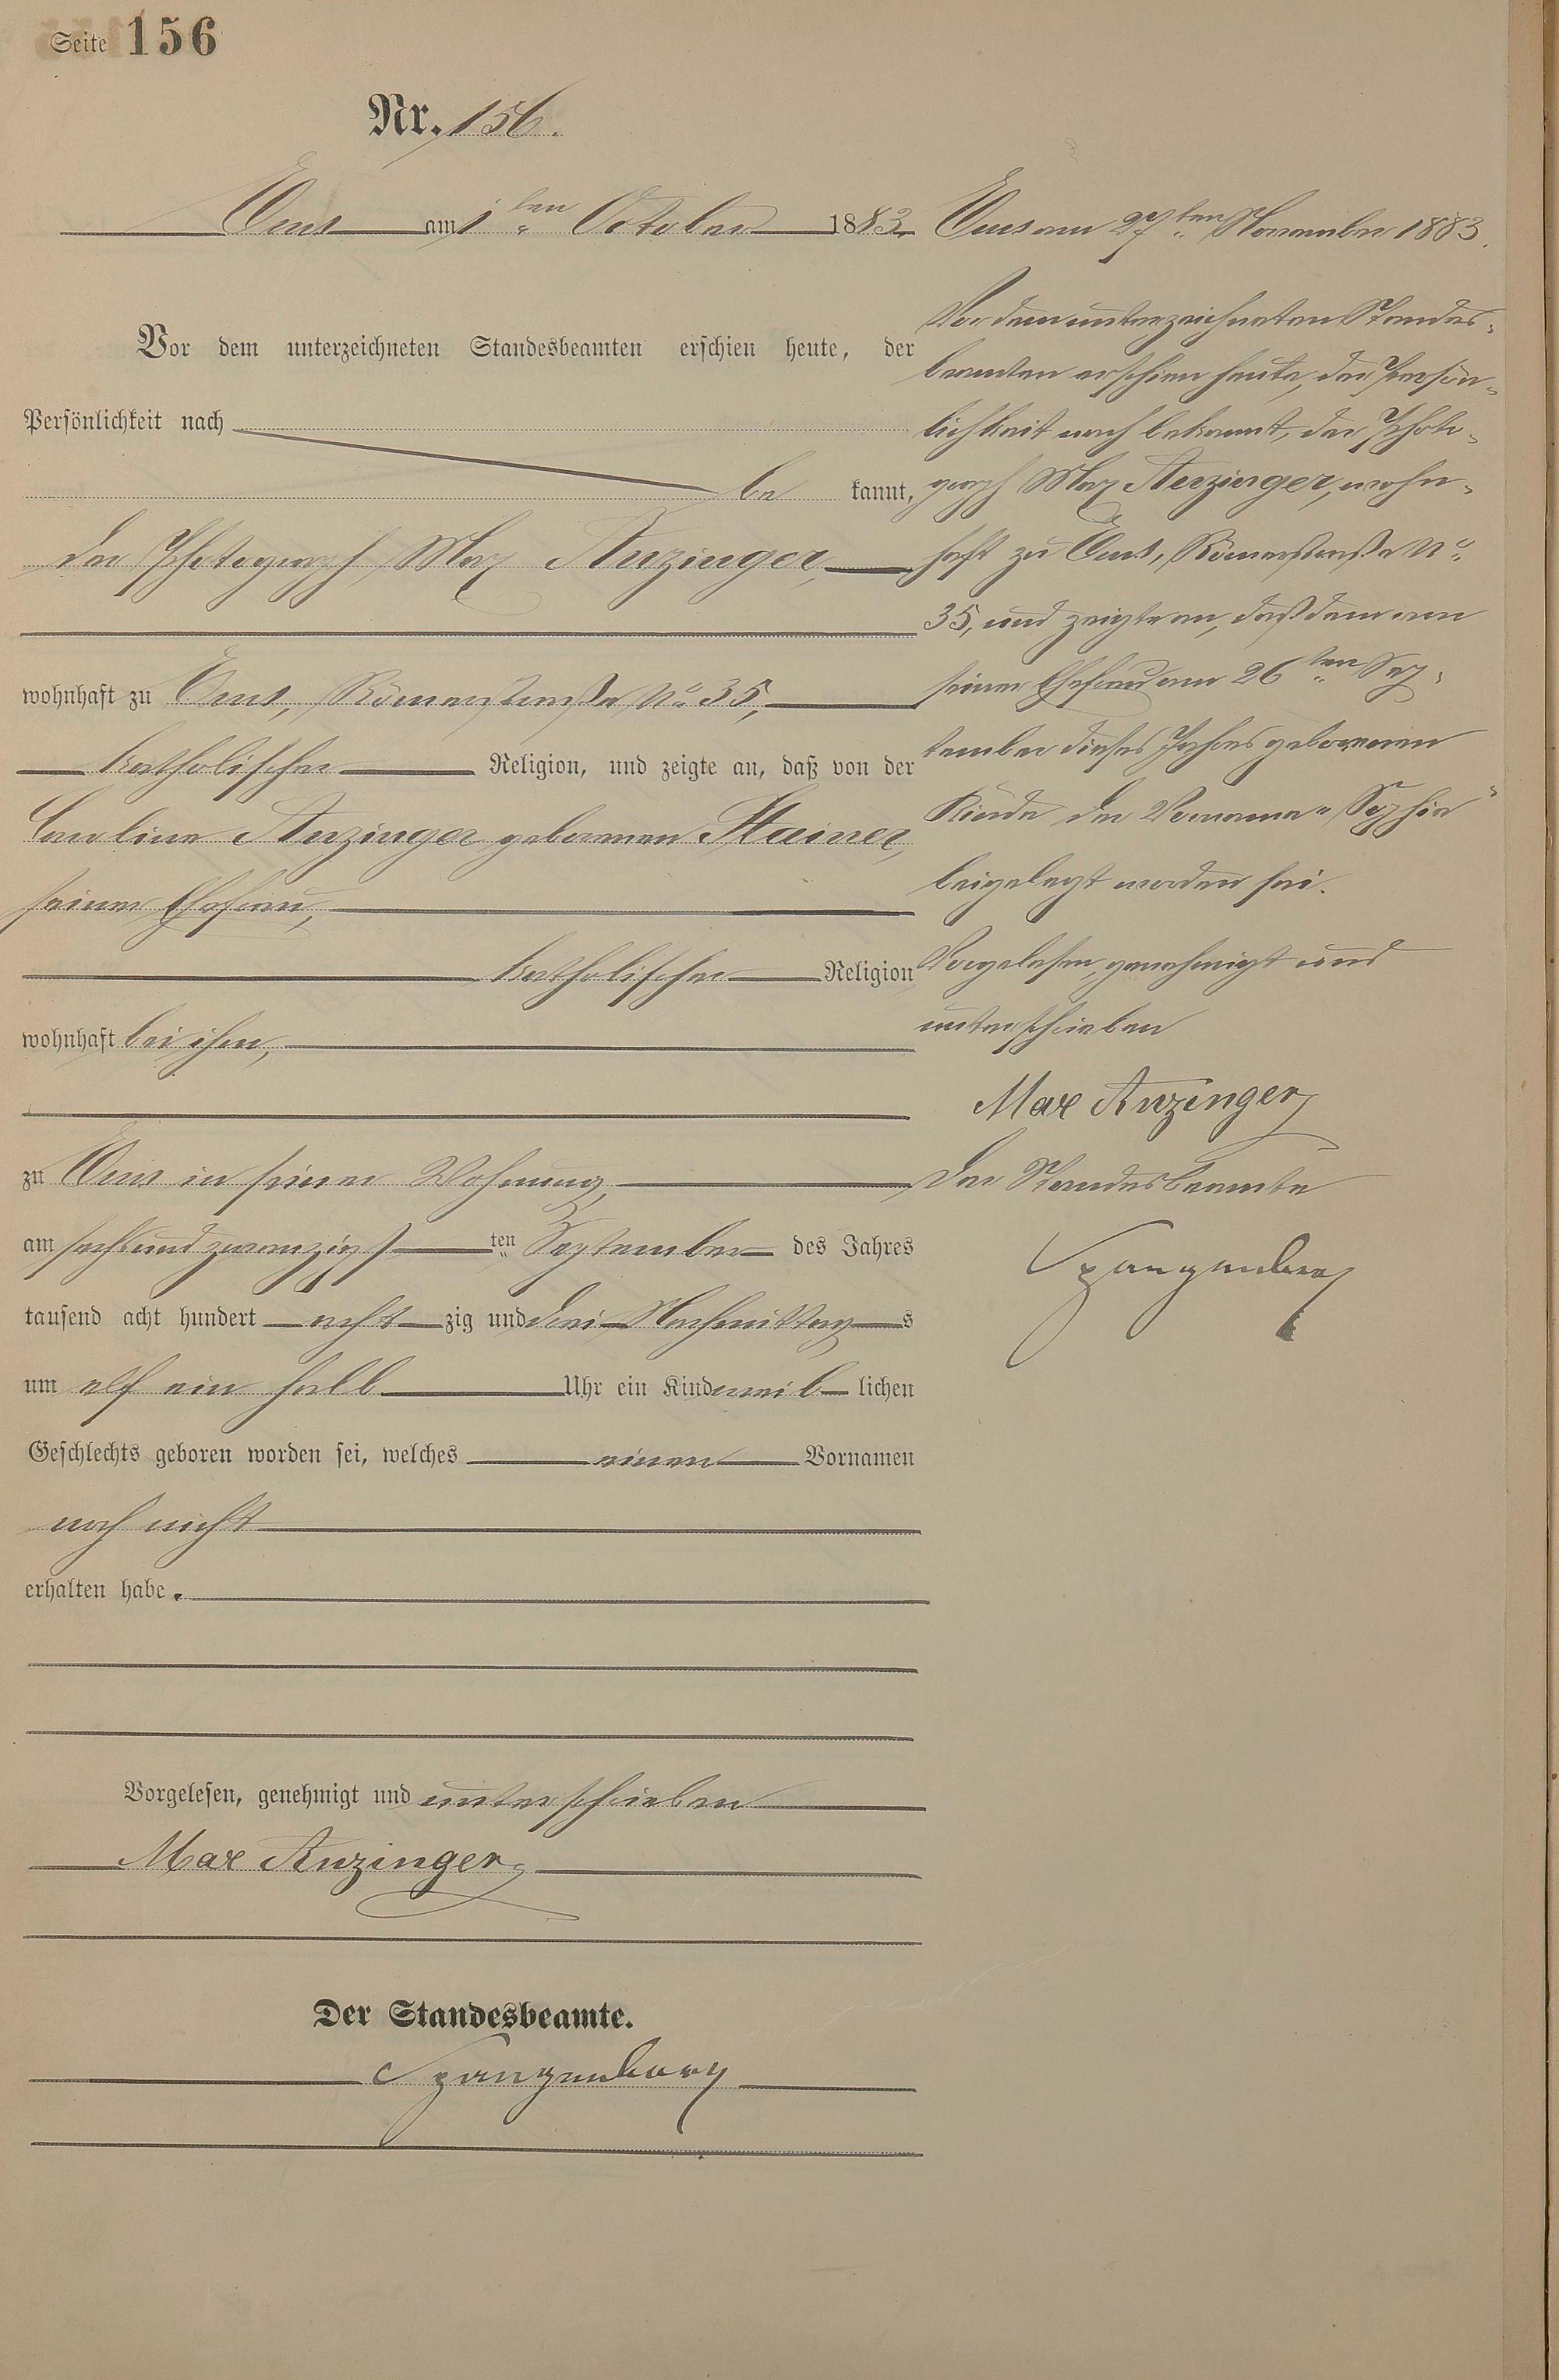 Seite 156
Nr. 156.
Ems am 1ten October 1883.
Vor dem unterzeichneten Standesbeamten erschien heute, der
Persönlichkeit nach
be kannt,
der Photograph Max Anzinger,
wohnhaft zu Ems, Römerstraße No 35,
katholischer Religion, und zeigte an, daß von der
Caroline Anzinger geborenen Stainer,
seiner Ehefrau,
katholischer Religion
wohnhaft bei ihm,
zu Ems in seiner Wohnung,
am sechsundzwanzigsten September des Jahres
tausend acht hundert acht zig und drei Nachmittag s
um elf ein halb Uhr ein Kind weib lichen
Geschlechts geboren worden sei, welches einen Vornamen
noch nicht
erhalten habe.
Vorgelesen, genehmigt und unterschrieben
Max Anzinger
Der Standesbeamte.
Spangenberg
Ems am 27ten November 1883.
Vor dem unterzeichneten Standes-
beamten erschien heute, der Persön-
lichkeit nach bekannt, der Photo-
graph Max Anzinger, wohn-
haft zu Ems, Römerstraße No
35, und zeigte an, daß dem von
seiner Ehefrau am 26ten Sep-
tember dieses Jahres geborenen
Kinde der Vorname "Sophie"
beigelegt worden sei.
Vorgelesen, genehmigt und
unterschrieben
Max Anzinger
Der Standesbeamte
Spangenberg